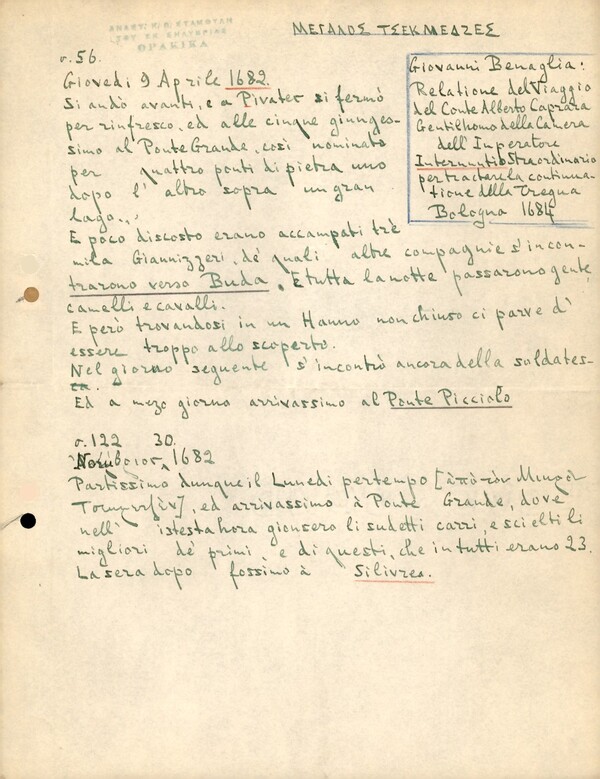 ΑΝΑΣΤ. Κ. Π. ΣΤΑΜΟΥΛΗ
ΤΟΥ ΕΚ ΣΗΛΥΒΡΙΑΣ
ΘΡΑΚΙΚΑ
ΜΕΓΑΛΟΣ ΤΣΕΚΜΕΔΖΕΣ
Giovanni Benaglia:
Relatione del Viaggio
del Conte Alberto Caprara
Gentilhomo della Camera
dell' Inperatore
Internuntio Straordinario
per tractare la continua-
tione della Tregua
Bologna 1684
σ. 56.
Giovedi 9 Aprile 1682.
Si andò avanti, e a Pivatec si fermò
per rinfresco, ed alle cinque giunges-
simo al Ponte Grande, così nominato
per quattro ponti di pietra uno
dopo l' altro sopra un gran
lago...
E poco discosto erano accampati trè
mila Giannizzeri, de' quali altre compagnie s' incon-
trarono verso Buda. E tutta la notte passarono gente,
camelli e cavalli.
E però trovandosi in un Hanno non chiuso ci parve d'
essere troppo allo scoperto.
Nel giorno seguente s' incontrò ancora della soldates-
ca.
Ed a mezo giorno arrivassimo al Ponte Picciolo
σ. 122 30.
1682
Partissimo dunque il Lunedi per tempo [ἀπὸ τὸν Μικρὸν
], ed arrivassimo à Ponte Grande, dove
nell' istesta hora gionsero li sudetti carri, e scielti li
migliori de' primi, e di questi, che in tutti erano 23.
La sera dopo fossimo à Silivrea.